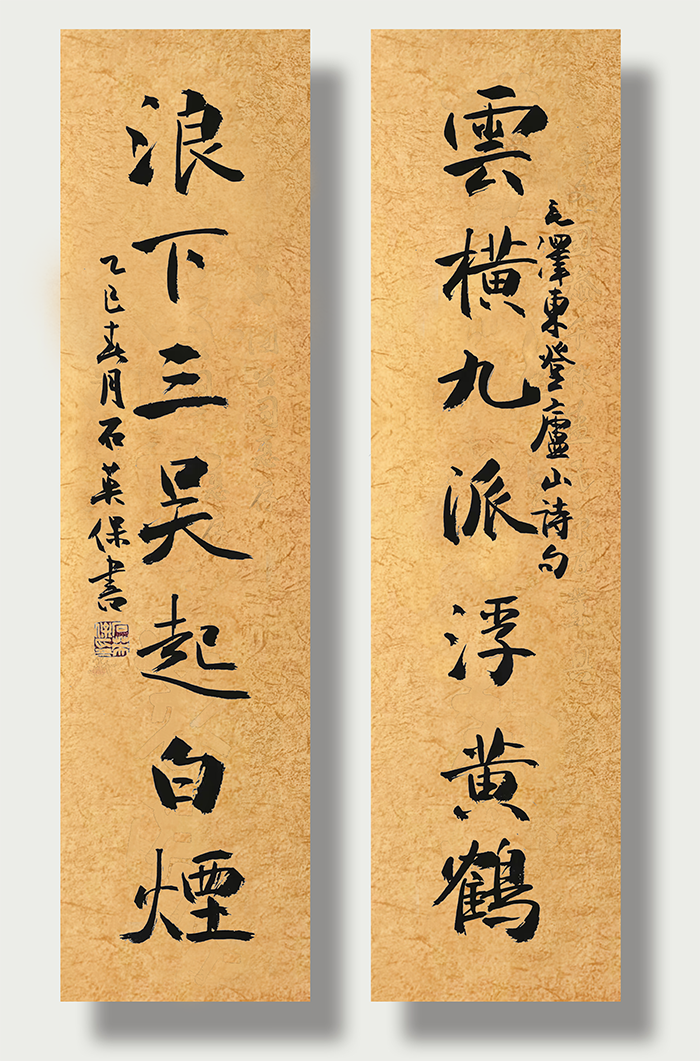 雲橫九派浮黄鶴
毛澤東登廬山诗句
浪下三吴起白煙
乙巳春月石英保書